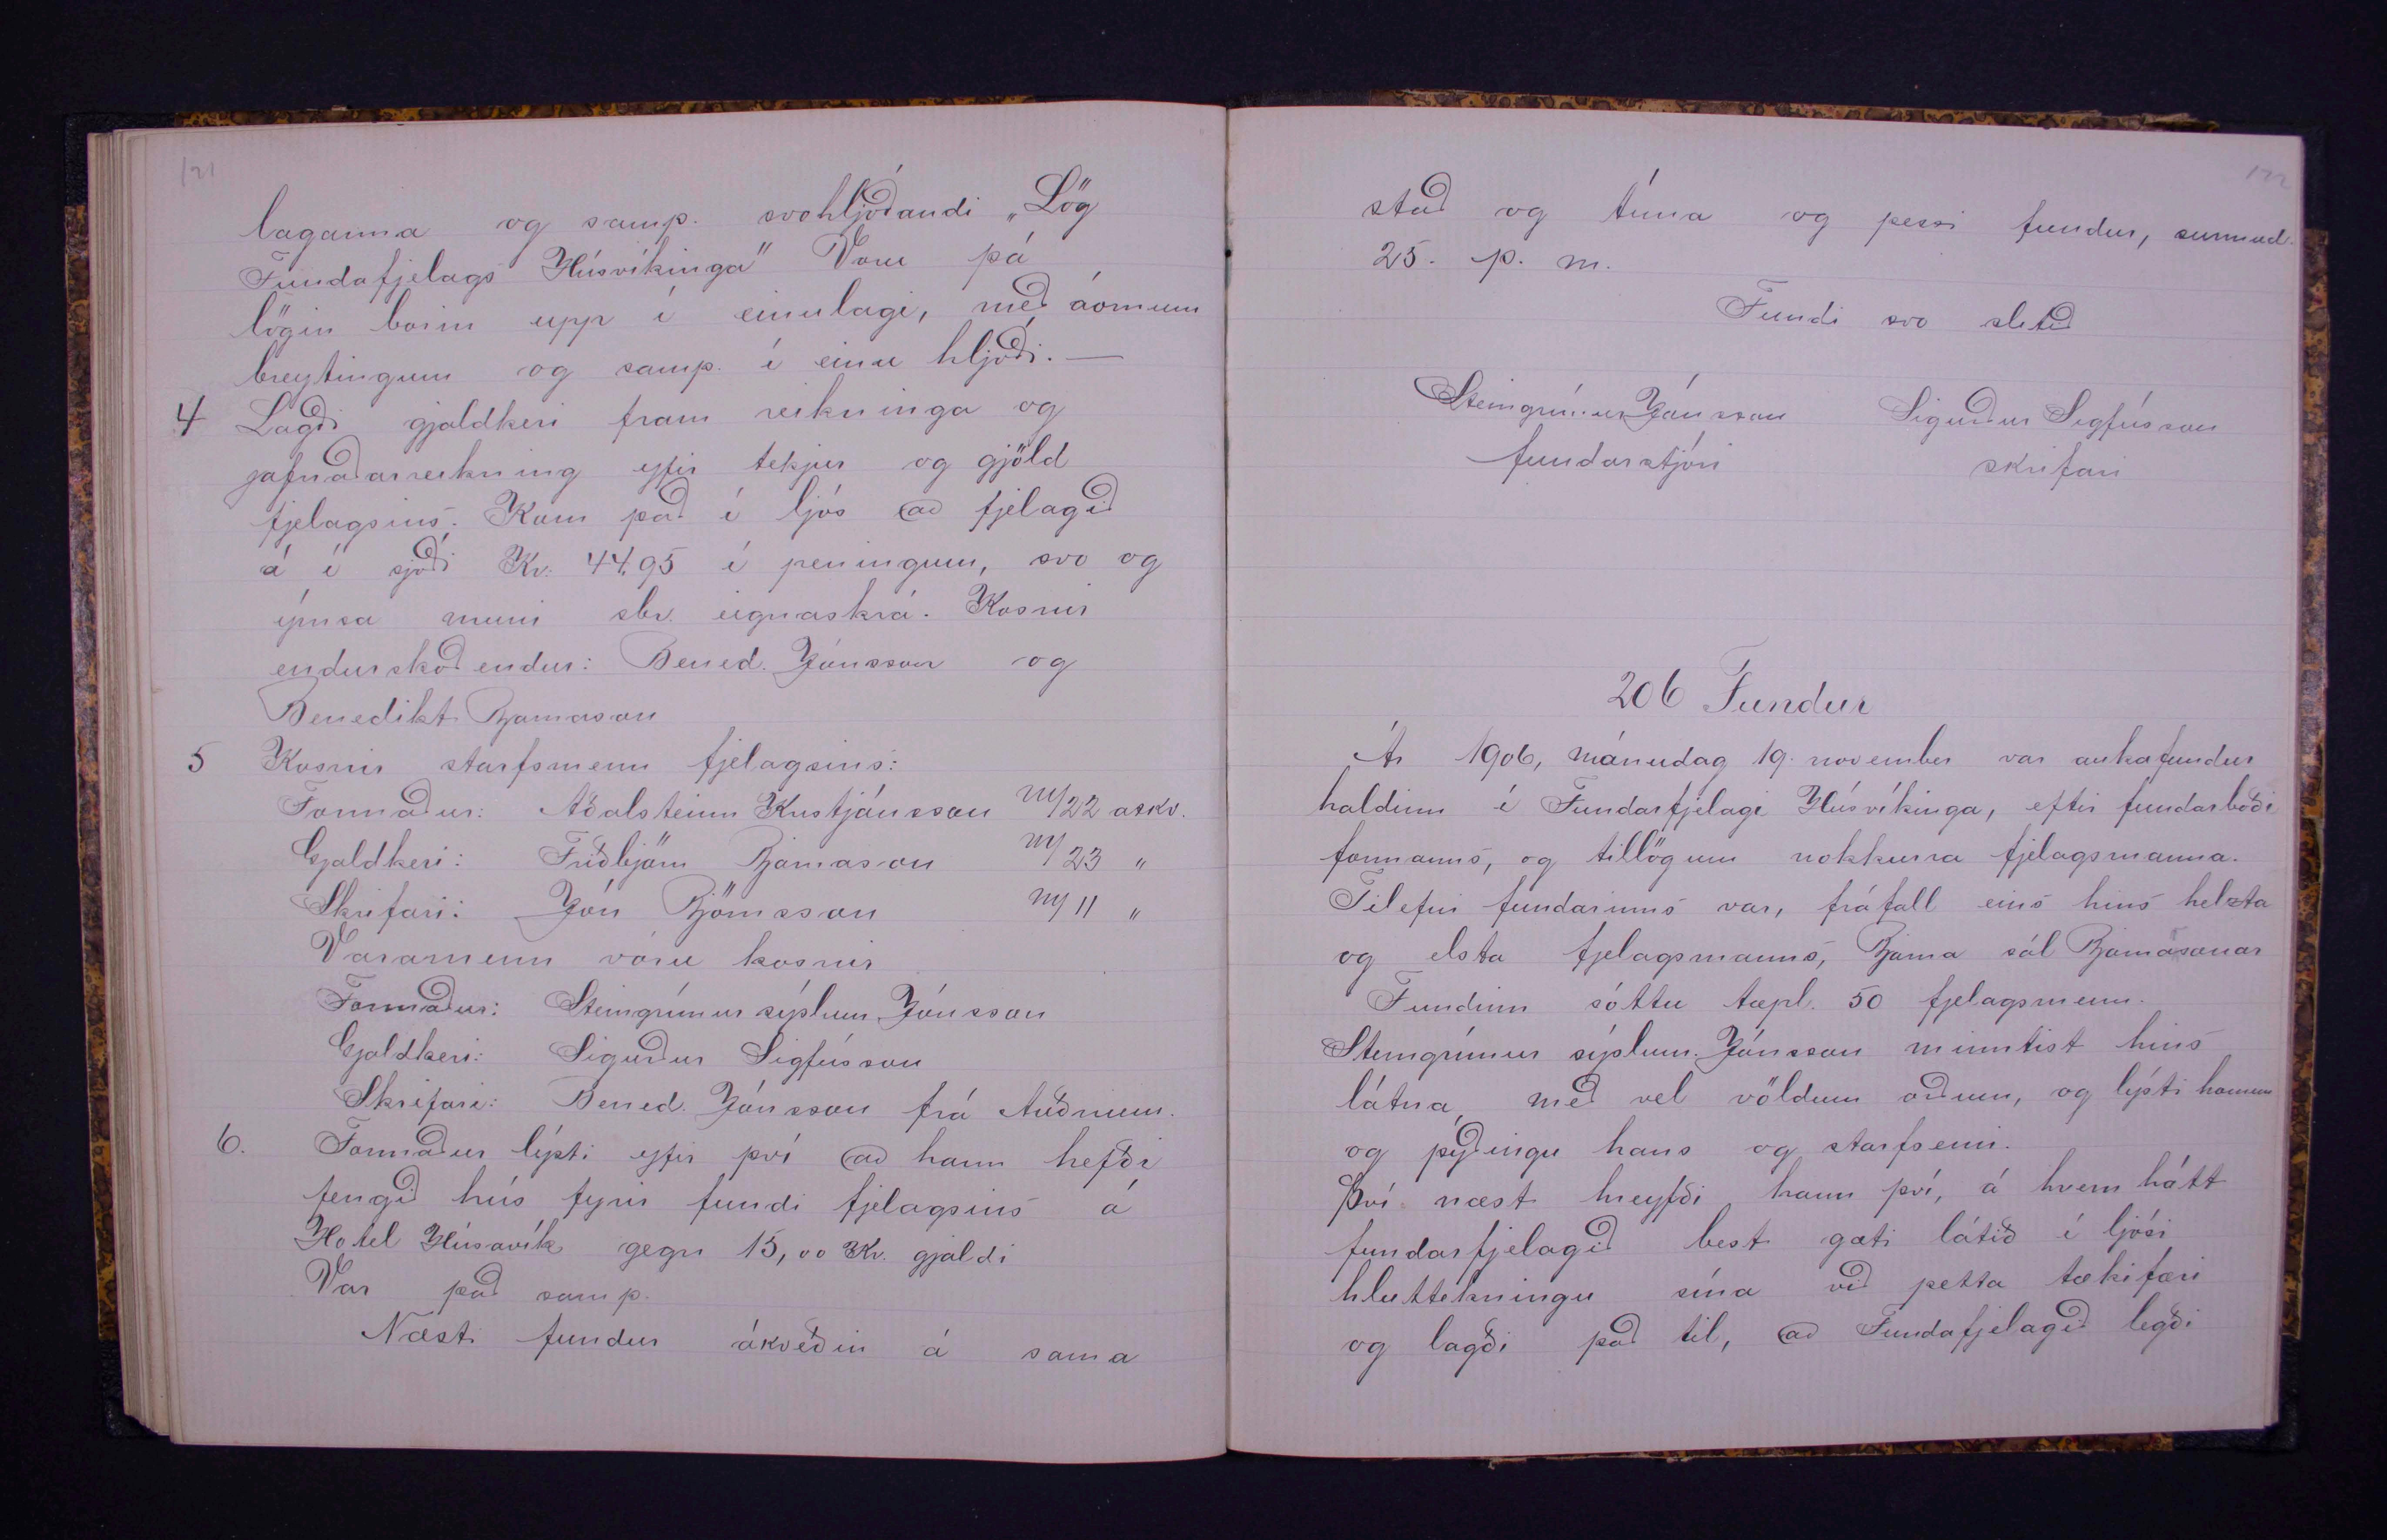 121
laganna og samþ. svohljóðandi „Lög
Fundafjelags Húsvíkinga" Voru þá
lögin borin upp í einulagi, með áornum
breytingum og samþ. í einu hljóði. —
4 Lagði gjaldkeri fram reikninga og
jafnaðarreikning yfir tekjur og gjöld
fjelagsins. Kom það í ljós að fjelagið
á í sjóði Kr. 44,95 í peningum, svo og
ýmsa muni sbr. eignaskrá. Kosnir
endurskoðendur: Bened. Jónsson og
Benedikt Bjarnason
5 Kosnir starfsmenn fjelagsins:
Formaður: Aðalsteinn Kristjánsson m/22 atkv.
Gjaldkeri: Friðbjörn Bjarnason m/23 "
Skrifari: Jón Björnsson m/11 "
Varamenn vóru kosnir
Formaður: Steingrímur sýslum. Jónsson
Gjaldkeri: Sigurður Sigfússon
Skrifari: Bened. Jónsson frá Auðnum.
6. Formaður lýsti yfir því að hann hefði
fengið hús fyrir fundi fjelagsins á
Hotel Húsavík gegn 15,00 Kr. gjaldi
Var það samþ.
Næsti fundur ákveðin á sama
122
stað og tíma og þessi fundur, sunnud.
25. þ. m.
Fundi svo slitið
Steingrímur Jónsson Sigurður Sigfússon
fundarstjóri skrifari
206 Fundur
Ár 1906, mánudag 19. november var aukafundur
haldinn í Fundarfjelagi Húsvíkinga, eftir fundarboði
formanns, og tillögum nokkurra fjelagsmanna.
Tilefni fundarinns var, fráfall eins hins helzta
og elsta fjelagsmanns, Bjarna sál Bjarnasonar
Fundinn sóttu tæpl. 50 fjelagsmenn.
Steingrímur sýslum. Jónsson minntist hins
látna, með vel völdum orðum, og lýsti honum
og þýðingu hans og starfsemi.
Því næst hreyfði hann því, á hvern hátt
fundarfjelagið best gæti látið í ljósi
hluttekningu sína við þetta tækifæri
og lagði það til, að Fundafjelagið legði